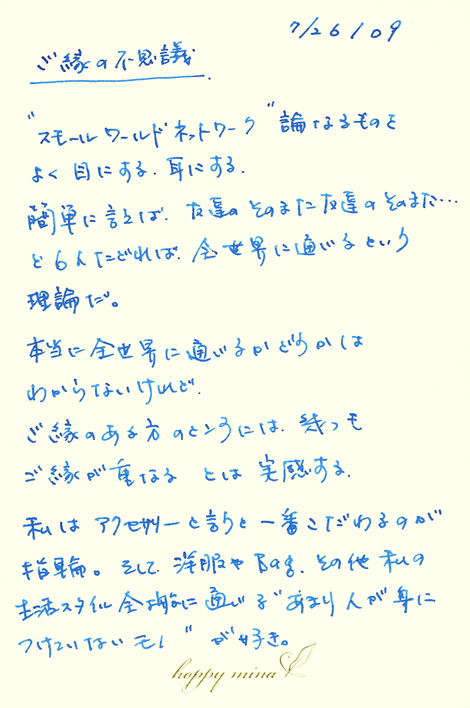 7/26/09
ご縁の不思議
"スモールワールドネットワーク"論なるものを
よく目にする.耳にする.
簡単に言えば.友達のそのまた友達のそのまた…
と6人たどれば.全世界に通じるという
理論だ。
本当に全世界に通じるかどうかは
わからないけれど.
ご縁のある方のところには.幾つも
ご縁が重なる とは 実感する.
私は アクセサリーと言うと一番こだわるのが
指輪。そして 洋服やBag.その他 私の
生活スタイル全般に通じる"あまり人が身に
つけていないモノ"が好き。
happy mina